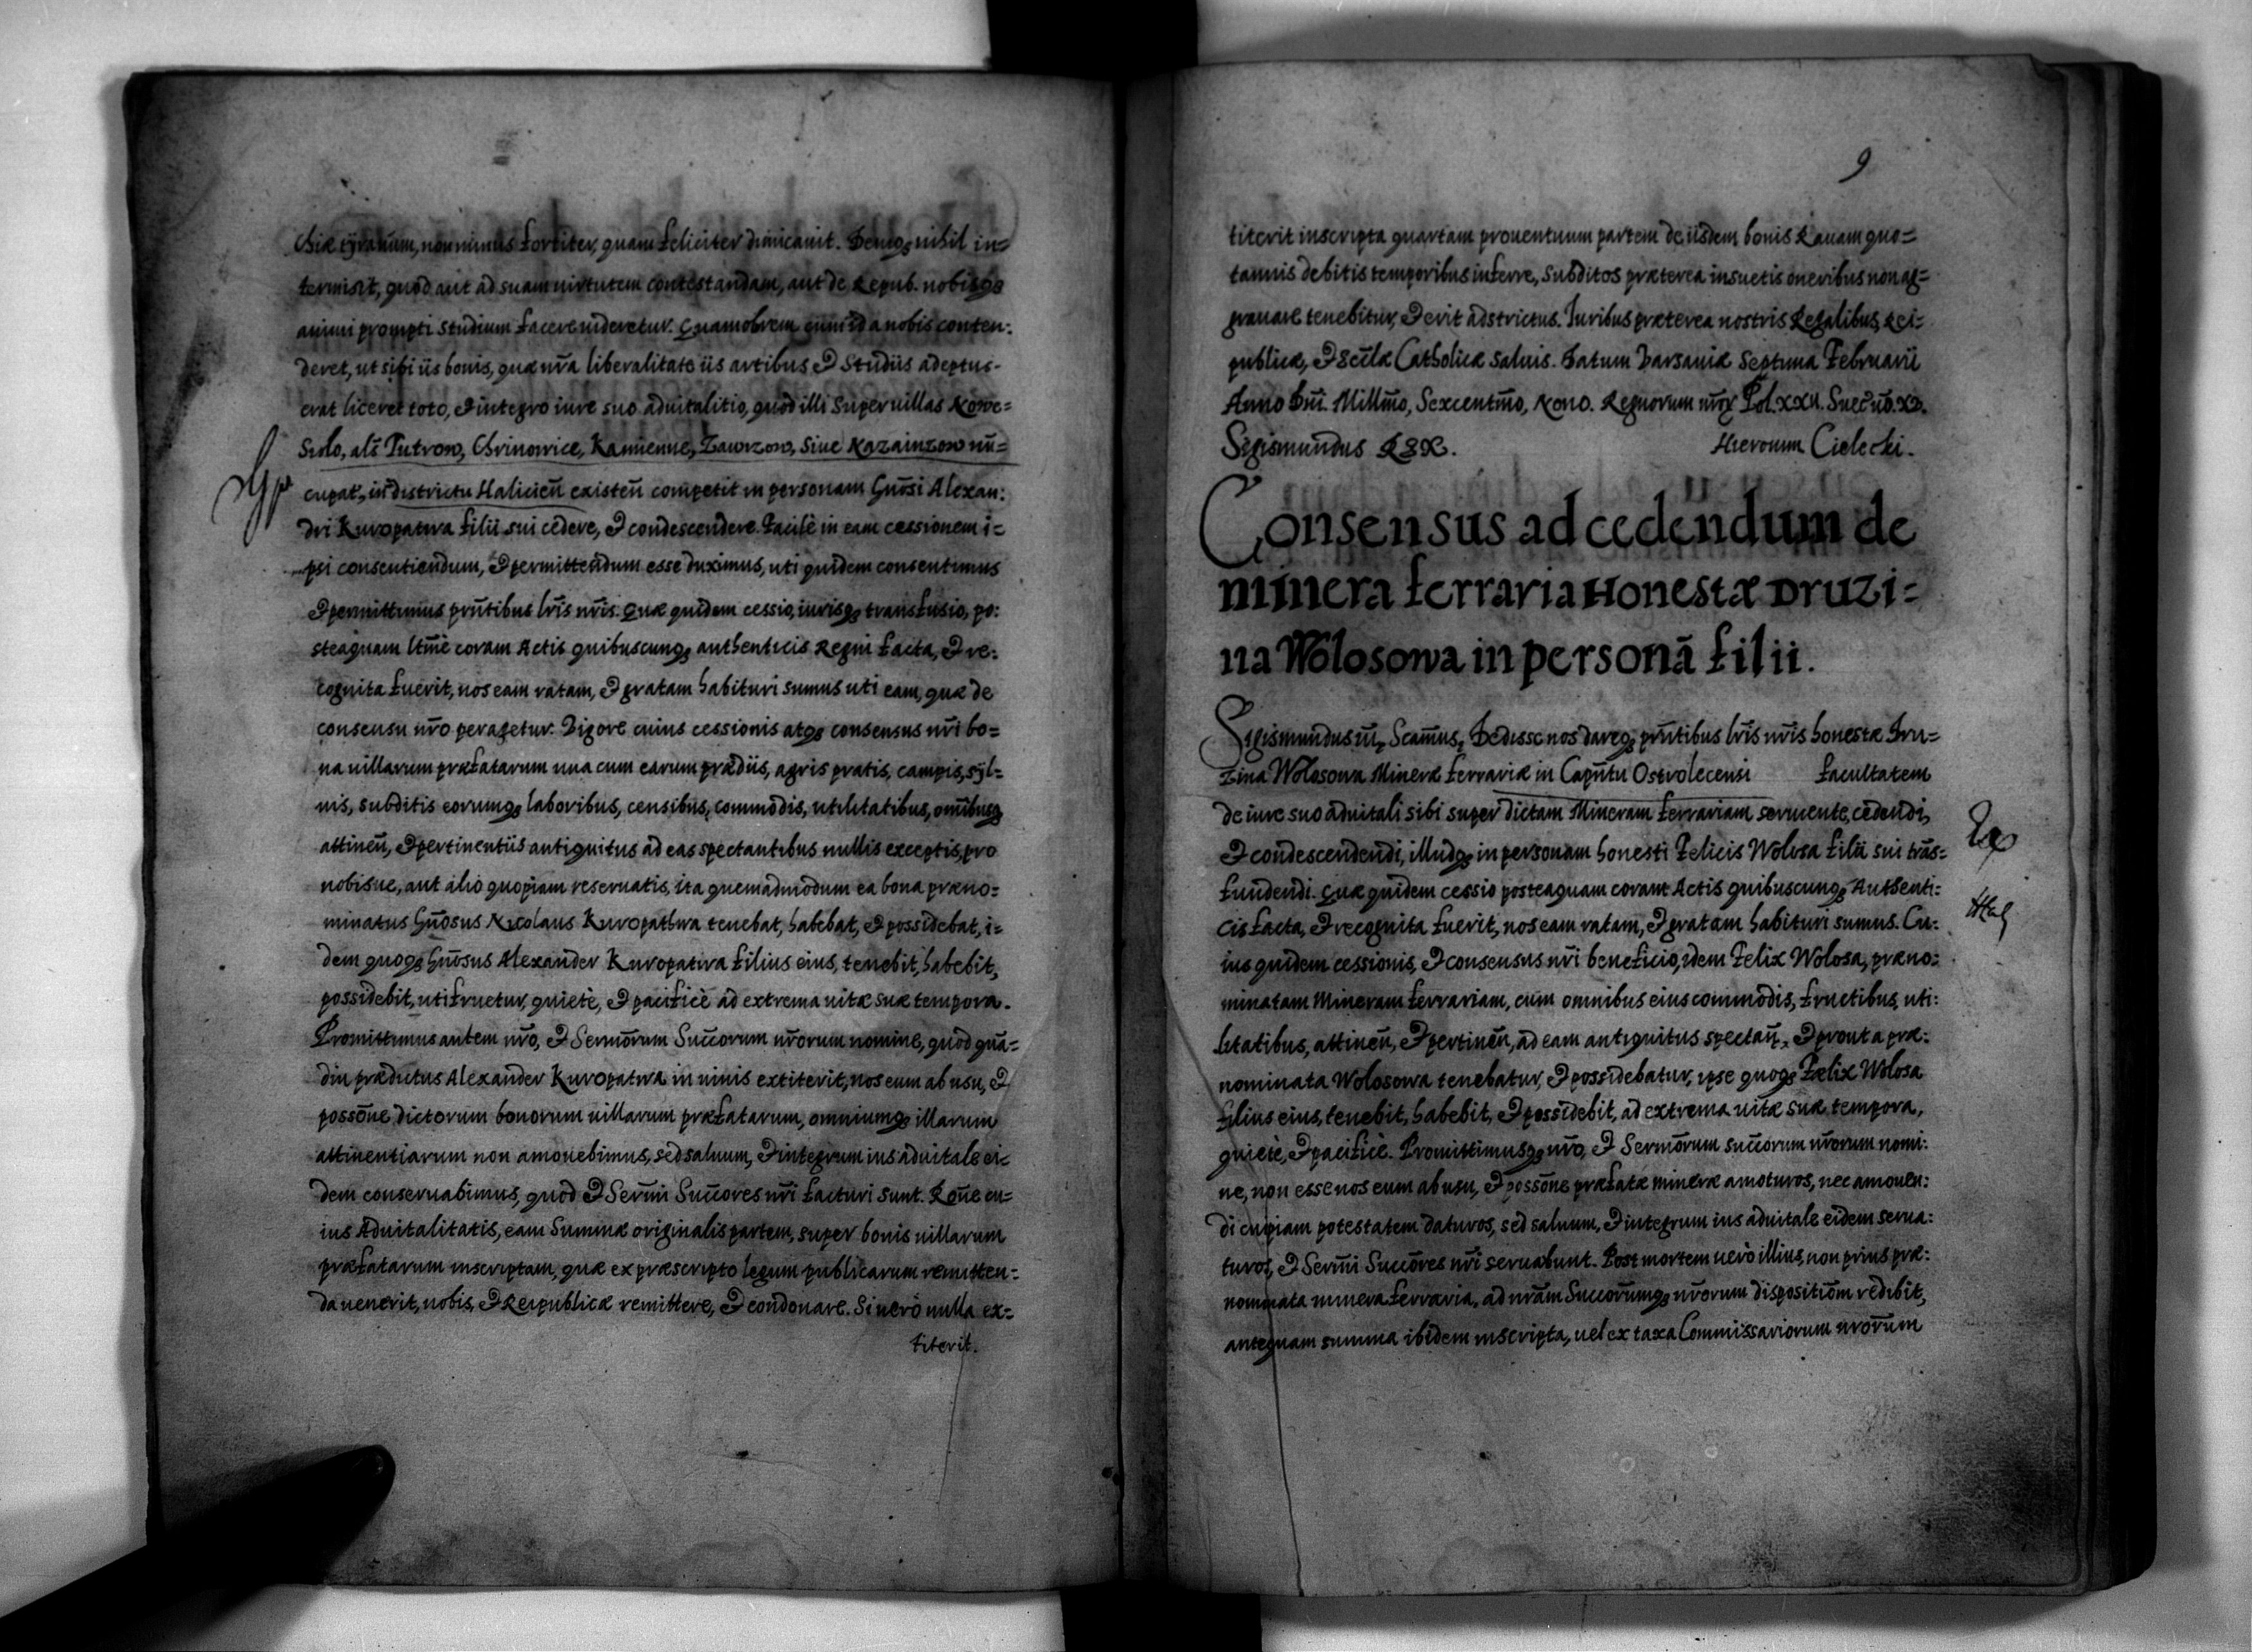 chiæ tÿranum, non minus fortiter, quam feliciter dimicauit. Demoq₃ nihil in=
termisit, quod aut ad suam uirtutem contestandam, aut de Repub. nobisq₃
animi prompti studium facere uideretur. Quamobrem cum id a nobis conten:
deret, ut sibi iis bonis, quæ nr̃a liberalitate iis artibus & studiis adeptus-
erat liceret toto, & integro iure suo aduitalitio, quod illi super uillas Nowe=
Siolo, als̃ Tutrow, Chrinowice, Kamienne, Zawzow, Siue Kazainzow nũ=
cupat, in districtu Halicieñ existeñ competit in personam Gñosi Alexan:
dri Kuropatwa filii sui cedere, & condescendere. Facilè in eam cessionem i=
psi consentiendum, & permittendum esse duximus, uti quidem consentimus
& permittimus prñtibus lr̃is nr̃is. Quæ quidem cessio, iurisq₃ transfusio, po:
steaquam ltm̃è coram Actis quibuscunq₃ authenticis Regni facta, & re:
cognita fuerit, nos eam ratam, & gratam habituri sumus uti eam, quæ de
consensu nr̃o peragetur. Vigore cuius cessionis atq₃ consensus nr̃i bo=
na uillarum præfatarum una cum earum prædiis, agris pratis, campis, sÿl=
uis, subditis eorumq₃ laboribus, censibus, commodis, utilitatibus, omĩbusq₃
attineñ, & pertinentiis antiquitus ad eas spectantibus nullis exceptis, pro
nobisue, aut alio quopiam reseruatis, ita quemadmodum ea bona præno=
minatus Gñosus Nicolaus Kuropathwa tenebat, habebat, & possidebat, i=
dem quoq₃ Gñosus Alexander Kuropatwa filius eius, tenebit, habebit,
possidebit, utifruetur, quietè, & pacificè ad extrema uitæ suæ tempora.
Promittimus autem nr̃o, & Serm̃orum Succ̃orum nr̃orum nomine, quod quã=
diu prædictus Alexander Kuropatwa in uiuis extiterit, nos eum ab usu, &
possõne dictorum bonorum uillarum præfatarum, omniumq₃ illarum
attinentiarum non amouebimus, sed saluum, & integrum ius aduitale ei=
dem conseruabimus, quod & Serm̃i Succ̃ores nr̃i facturi sunt. Rõne cu=
ius Aduitalitatis, eam Summæ originalis partem, super bonis uillarum
præfatarum inscriptam, quæ ex præscripto legum publicarum remitten=
da uenerit, nobis, & Reipublicæ remittere, & condonare. Si uerò nulla ex=
titerit.
9
titerit inscripta quartam prouentuum partem de iisdem bonis Rauam quo=
tannis debitis temporibus inferre, subditos præterea insuetis oneribus non ag=
grauare tenebitur, & erit adstrictus. Iuribus præterea nostris Regalibus, Rei=
publicæ, & Eccl̃æ Catholicæ saluis. Datum Varsauiæ septima Februarii
Anno Dñi. Millm̃o, Sexcentm̃o, Nono. Regnorum nr̃orum Pol. XXII. Suec̃ uõ. XV.
Sigismundus REX.
Hieronim Cielecki.
Consensus ad cedendum de
minera ferraria Honestæ Druzi=
na Wolosowa in personã filii.
Sigismundus III, Scam̃us, Dedisse nos dareq₃ prñtibus lr̃is nr̃is honestæ Dru=
zina Wolosowa Mineræ ferrariæ in Capñtu Ostrolecensi facultatem
de iure suo aduitali sibi super dictam Mineram ferrariam seruiente, cedendi,
& condescendendi, illudq₃ in personam honesti Felicis Wolosa filii sui trãs=
fundendi. Quæ quidem cessio posteaquam coram Actis quibuscunq₃ Authenti:
cis facta, & recognita fuerit, nos eam ratam, & gratam habituri sumus. Cu:
ius quidem cessionis, & consensus nr̃i beneficio, idem Felix Wolosa, præno:
minatam Mineram ferrariam, cum omnibus eius commodis, fructibus, uti:
litatibus, attineñ, & pertineñ, ad eam antiquitus spectañ, & prout a præ:
nominata Wolosowa tenebatur, & possidebatur, ipse quoq₃ Fælix Wolosa
filius eius, tenebit, habebit, & possidebit, ad extrema uitæ suæ tempora,
quietè, & pacificè. Promittimusq₃ nr̃o, & Serm̃orum succ̃orum nr̃orum nomi:
ne, non esse nos eum ab usu, & possõne præfatæ mineræ amoturos, nec amouen:
di cuipiam potestatem daturos, sed saluum, & integrum ius aduitale eidem serua:
turos, & Serm̃i Succ̃ores nr̃i seruabunt. Post mortem uerò illius, non prius præ:
nominata minera ferraria, ad nr̃am Succ̃orumq₃ nr̃orum dispositiõm redibit,
antequam summa ibidem inscripta, uel ex taxa Commissariorum nr̃orum